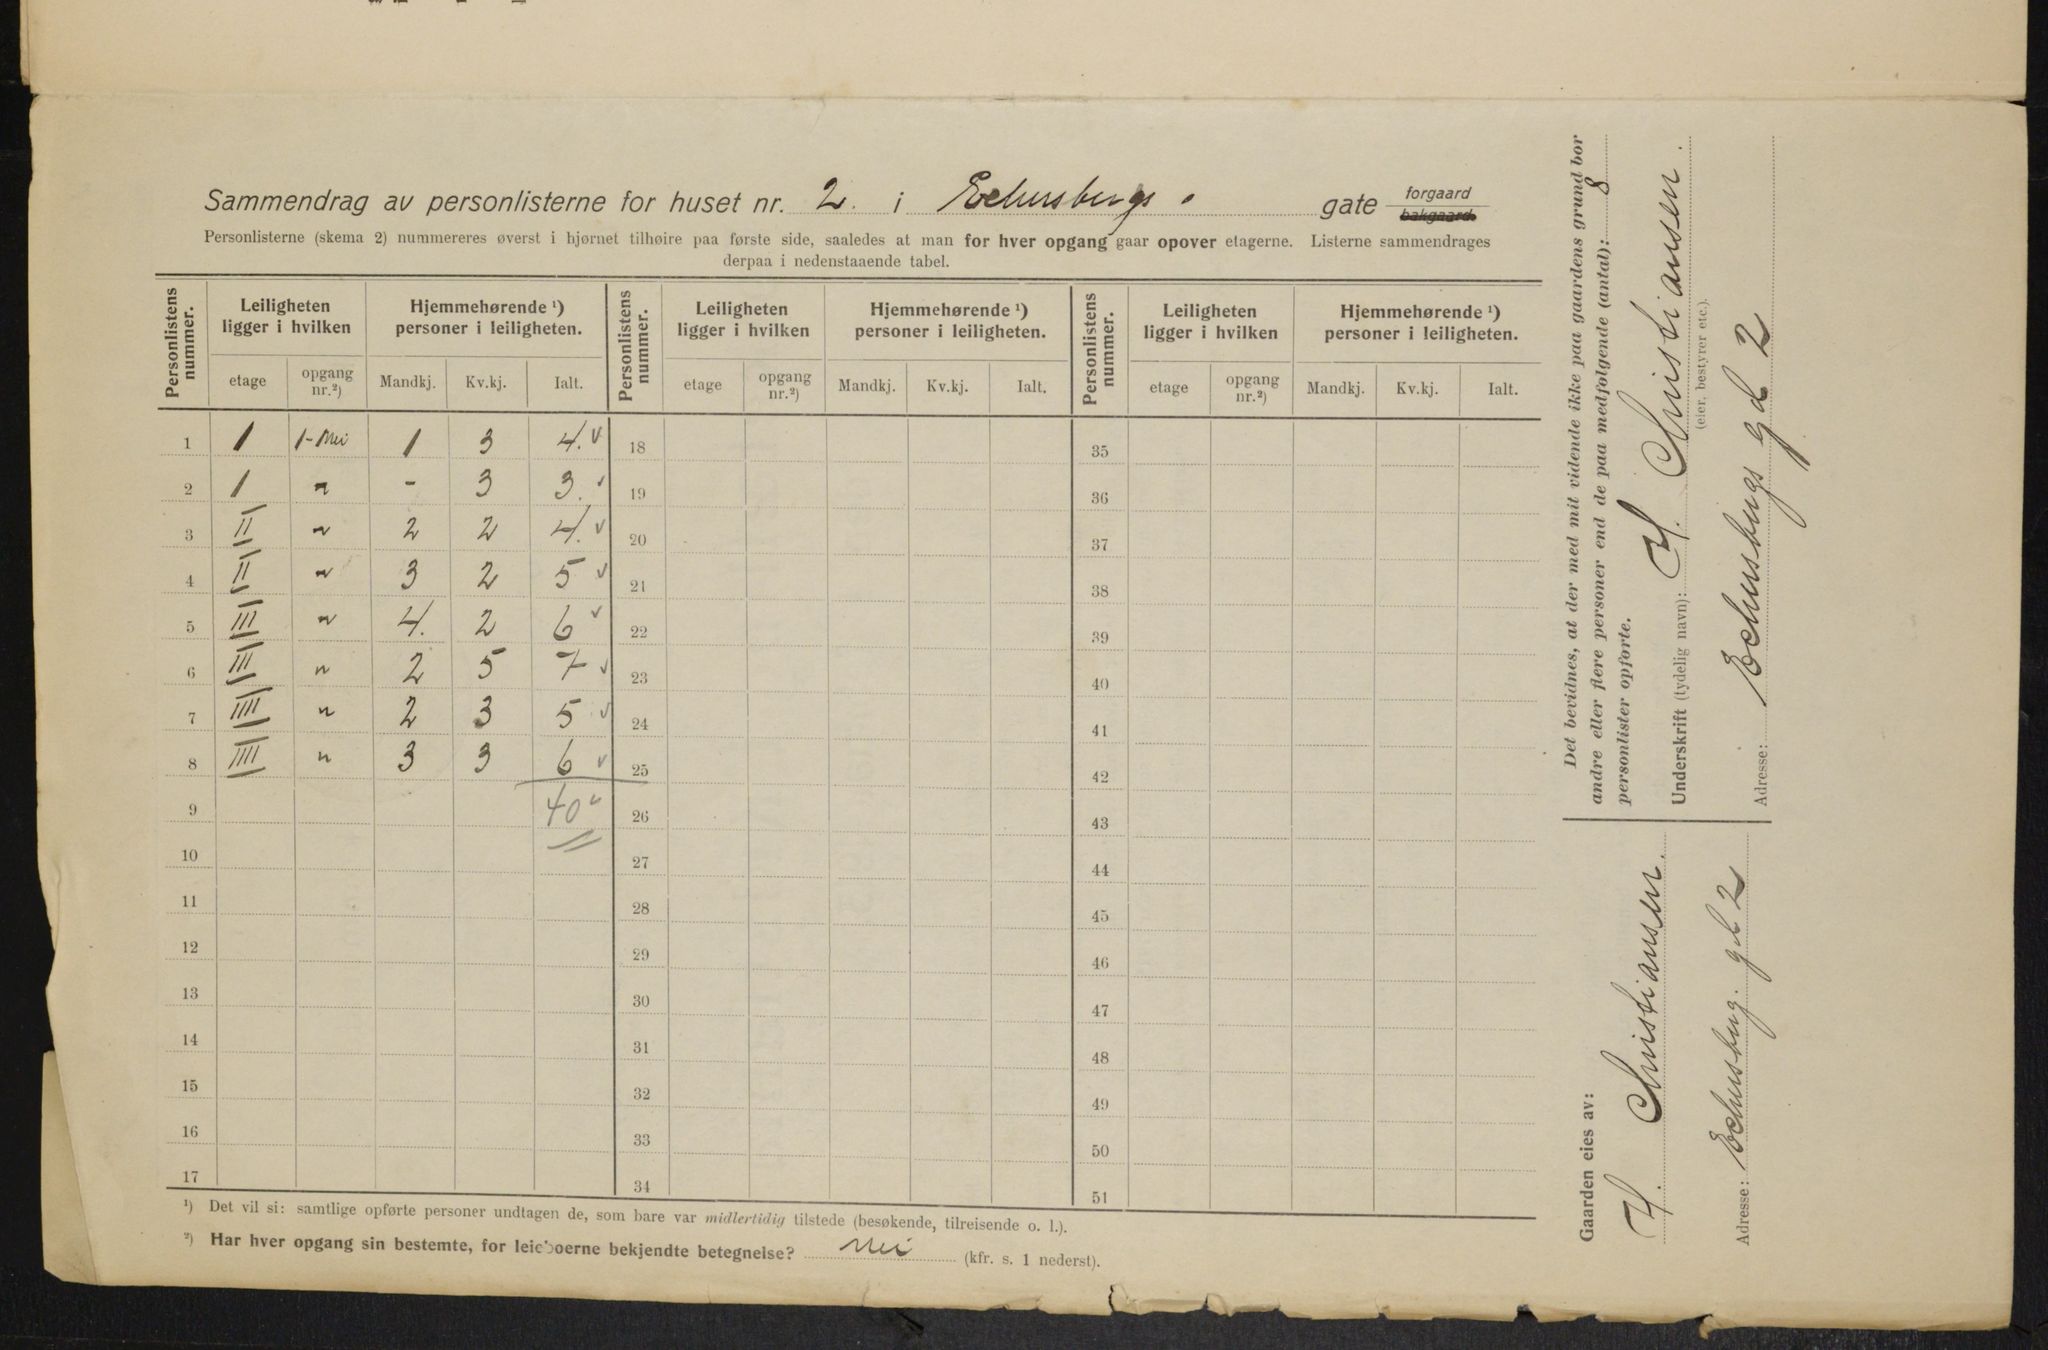 Sammendrag av personlisterne for huset nr. 2. i Eckersbergs gate forgaard bakgaard.
Personlisterne (skema 2) nummereres øverst i hjørnet tilhøire paa første side, saaledes at man for hver opgang gaar opover etagerne. Listerne sammendrages
derpaa i nedenstaaende tabel.
Personlistens nummer. Leiligheten ligger i hvilken Hjemmehørende ¹) personer i leiligheten. Personlistens nummer. Leiligheten ligger i hvilken Hjemmehørende ¹) personer i leiligheten. Personlistens nummer. Leiligheten ligger i hvilken Hjemmehørende ¹) personer i leiligheten.
etage opgang nr.²) Mandkj. Kv.kj. Ialt. etage opgang nr.²) Mandkj. Kv.kj. Ialt. etage opgang nr.²) Mandkj. Kv.kj. Ialt.
1 I 1-Nei 1 3 4. 18 35
2 I " - 3 3. 19 36
3 II " 2 2 4. 20 37
4 II " 3 2 5 21 38
5 III " 4. 2 6 22 39
6 III " 2 5 7 23 40
7 IIII " 2 3 5 24 41
8 IIII " 3 3 6 25 42
9 40 26 43
10 27 44
11 28 45
12 29 46
13 30 47
14 31 48
15 32 49
16 33 50
17 34 51
¹) Det vil si: samtlige opførte personer undtagen de, som bare var midlertidig tilstede (besøkende, tilreisende o. l.).
²) Har hver opgang sin bestemte, for leieboerne bekjendte betegnelse? Nei (kfr. s. 1 nederst).
Det bevidnes, at der med mit vidende ikke paa gaardens grund bor
andre eller flere personer end de paa medfølgende (antal): 8
personlister opførte.
Underskrift (tydelig navn): H. Christiansen.
(eier, bestyrer etc.).
Adresse: Eckersbergs gd 2
Gaarden eies av:
H. Christiansen.
Adresse: Eckersberg. gd 2